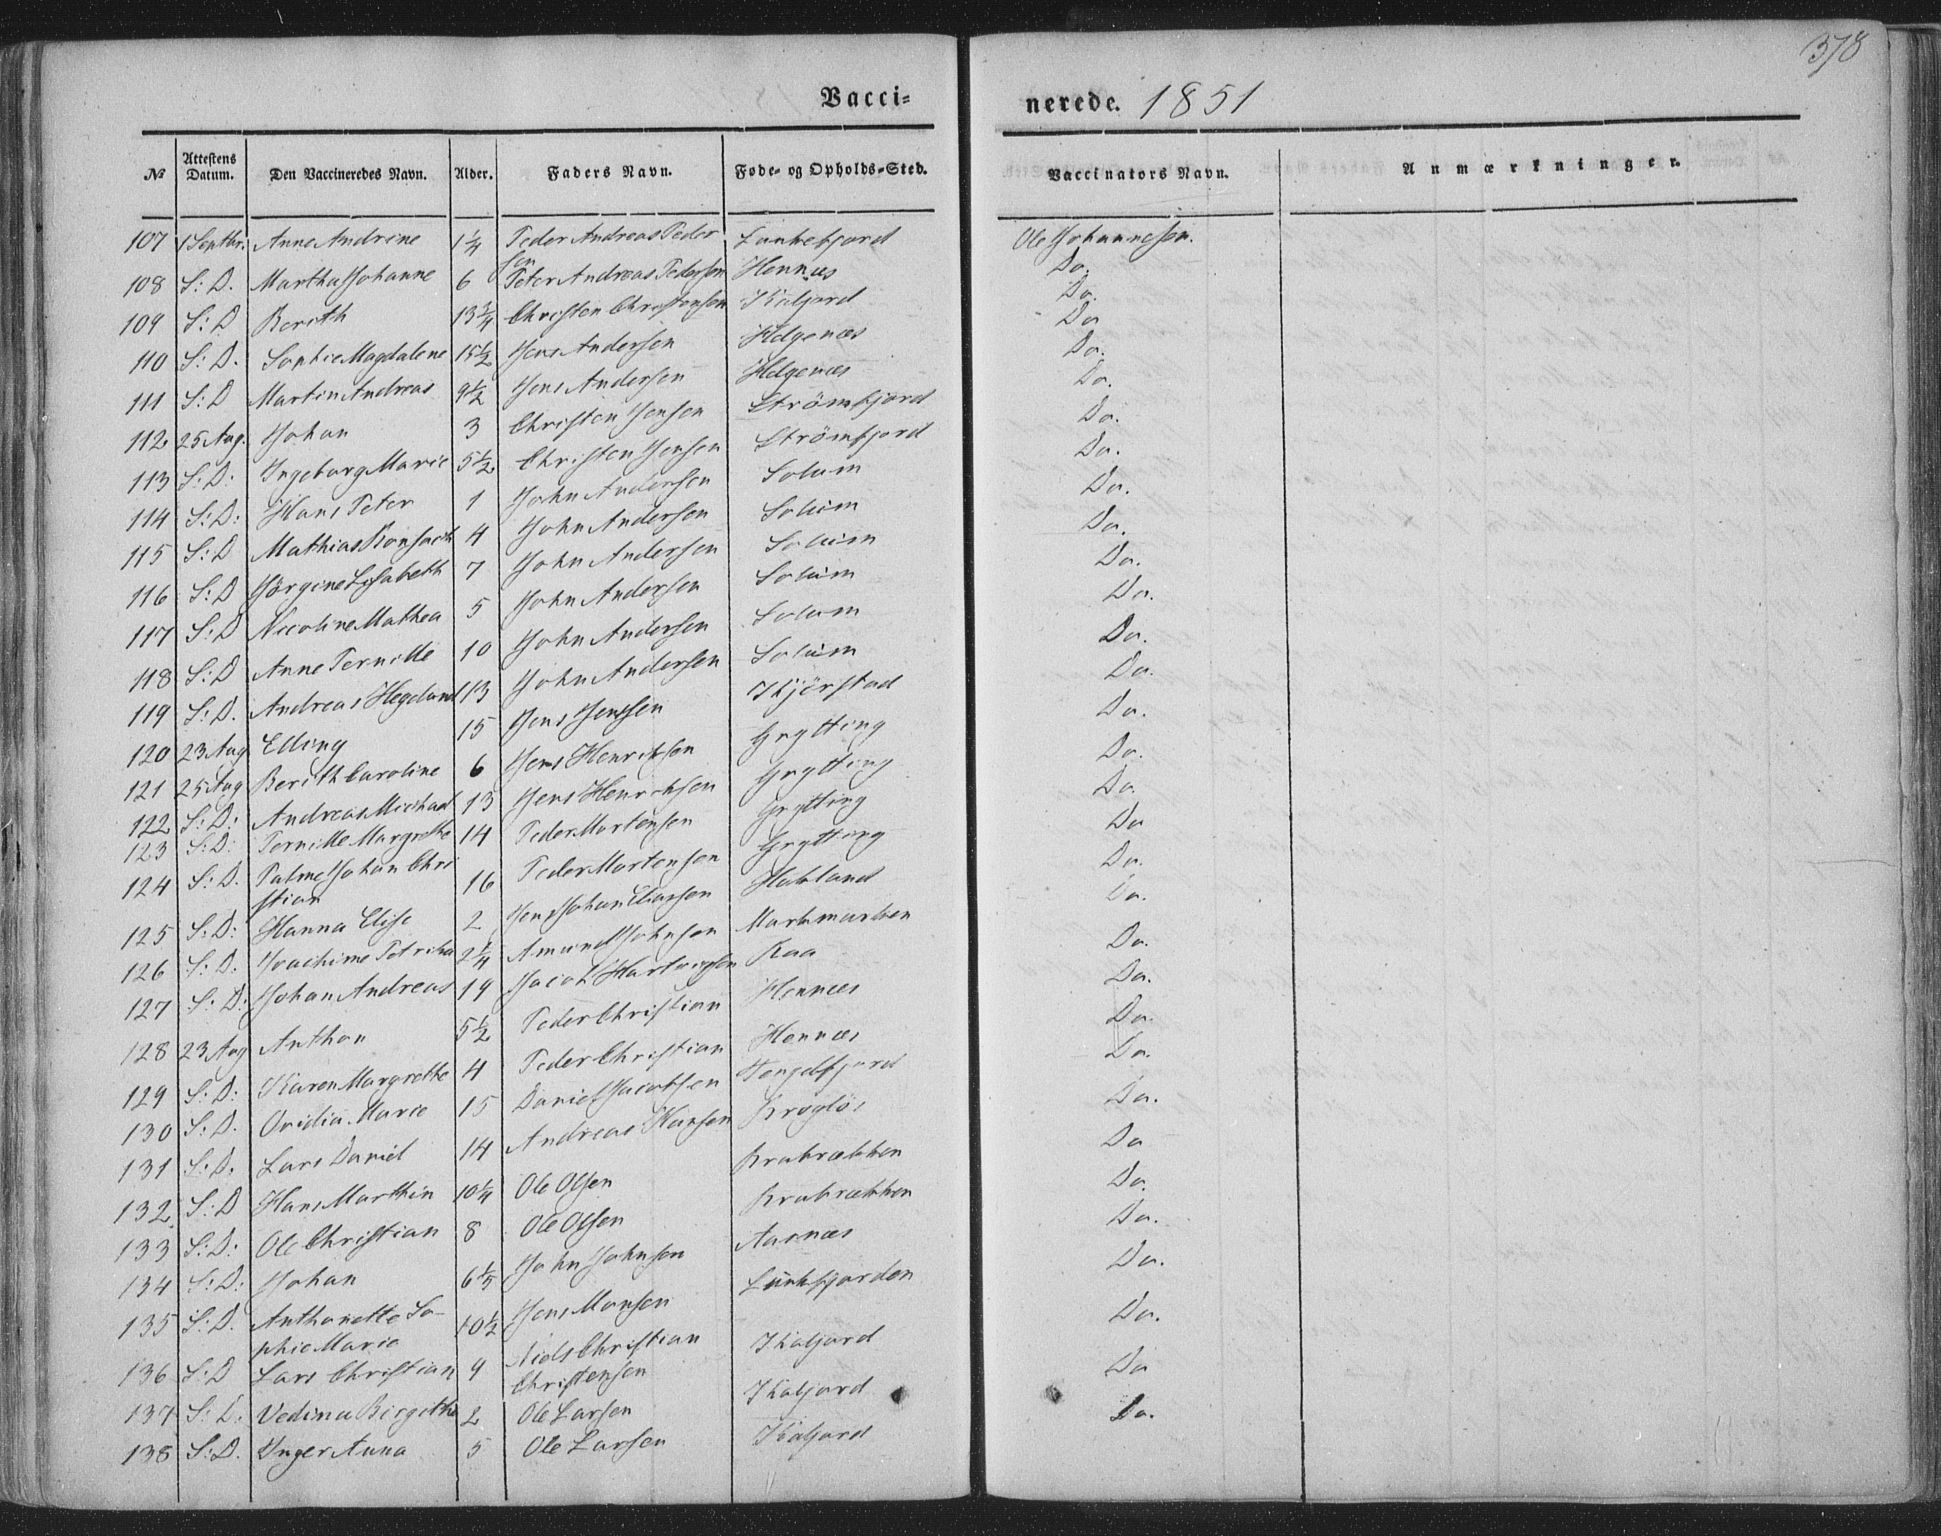 378
Vaccinerede. 1851
No Attestens Datum. Den Vaccineredes Navn. Alder. Faders Navn. Føde- og Opholds-Sted. Vaccinators Navn. Anmærkninger.
107 1 Septbr. Anne Andrine 1 1/4 Peder Andreas Pedersen Lonkefjord Ole Johannesen.
108 S: D. Martha Johanne 6 Peter Andreas Pedersen Hennæs Do.
109 S: D Berith 13 3/4 Christen Christensen Kaljord Do.
110 S: D. Sophie Magdalene 15 1/2 Jens Andersen Helgenæs Do
111 S: D Martin Andreas 9 1/2 Jens Andersen Helgenæs Do.
112 25 Aug. Johan 3 Christen Jensen Strömfjord Do.
113 S: D: Ingeborg Marie 5 1/2 Christen Jensen Strömfjord Do.
114 S: D: Hans Peter 1 John Andersen Solum Do.
115 S: D Mathias 4 John Andersen Solum Do.
116 S: D Jörgine Lisabeth 7 John Andersen Solum Do.
117 S: D Nicoline Mathea 5 John Andersen Solum Do.
118 S: D Anne Pernille 10 John Andersen Solum Do.
119 S: D. Andreas Hegeland 13 John Andersen Solum Do.
120 23 Aug Elling 15 Jens Jensen Kjörstad Do.
121 25 Aug Berith Caroline 6 Jens Henriksen Grytting Do.
122 S: D: Andreas Michael 13 Jens Henriksen Grytting Do.
123 S: D: Pernille Margrethe 14 Peder Mortensen Grytting Do
124 S: D. Palme Johan Christian 16 Peder Mortensen Grytting Do
125 S: D: Hanna Elise 2 Jens Johan Eliassen Hakland Do.
126 S: D. Joachime Petrika 2 1/4 Amund Johnsen Markmarken Do.
127 S: D: Johan Andreas 19 Jacob Hartvigsen Raa Do.
128 23 Aug Anthon 5 1/2 Peder Christian Hennæs Do.
129 S: D: Karen Margrethe 4 Peder Christian Hennæs Do.
130 S: D. Ovidia Marie 15 Daniel Jacobsen Tengelfjord Do.
131 S: D. Lars Daniel 14 Andreas Hansen Kroglös Do.
132 S: D Hans Marthin 10 1/4 Ole Olsen Krabrækken Do
133 S: D: Ole Christian 8 Ole Olsen Krabrækken Do.
134 S: D: Johan 6 1/5 John Johnsen Aarnæs Do.
135 S: D. Anthonette Sophie Marie 10 1/2 Jens Monsen Lunkfjorden Do.
136 S: D Lars Christian 9 Niels Christian Christensen Kaljord Do.
137 S: D. Vedina Birgitha 2 Ole Larsen Kaljord Do
138 S: D. Inger Anna 5 Ole Larsen Kaljord Do.